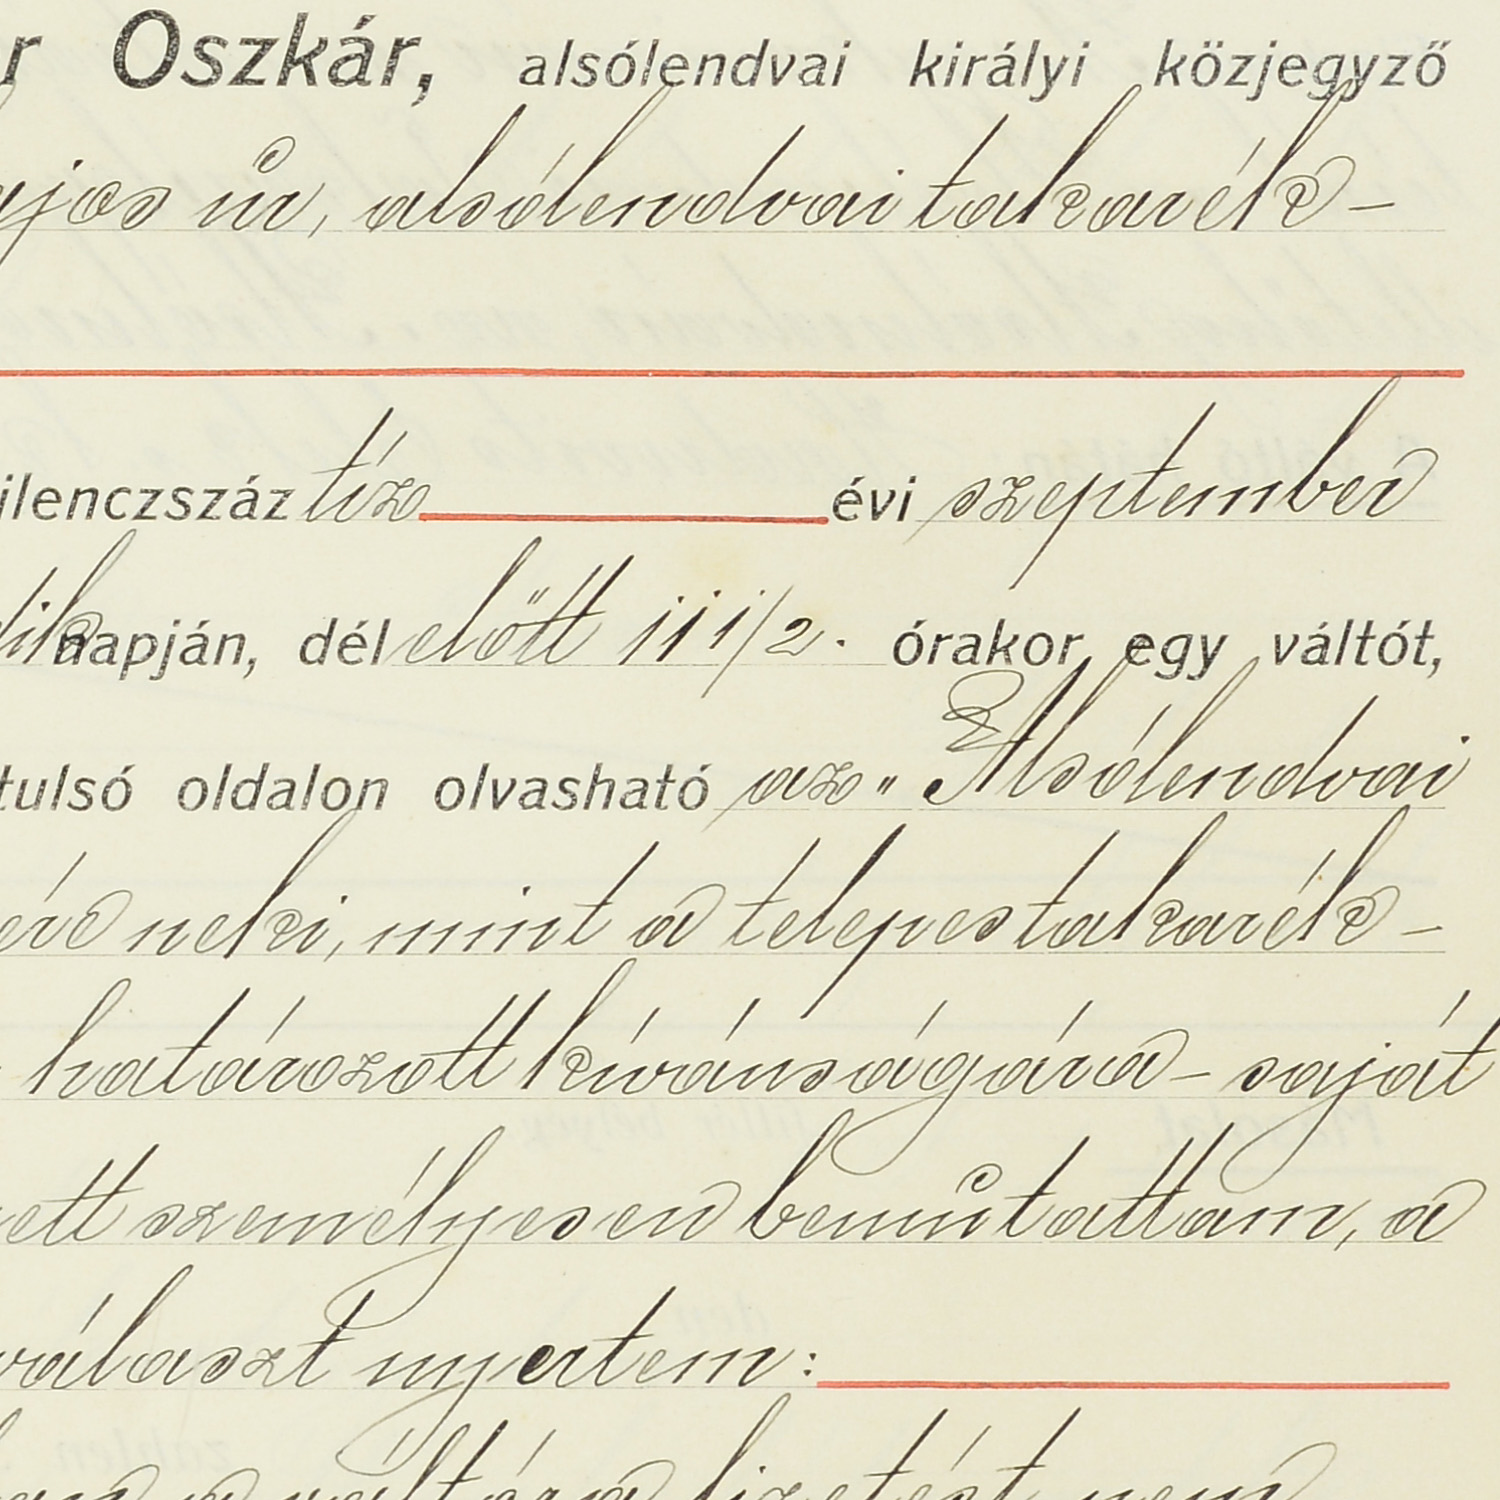 r Oszkár, alsólendvai királyi közjegyző
ajos úr, alsólendvai takarék-
ilenczszáz tíz évi szeptember
dik napján, dél előtt 11 1/2. órakor egy váltót,
tulsó oldalon olvasható az „Alsólendvai
neki, mint a telepes takarék-
határozott kívánságára - saját
ett személyesen bemutattam, a
választ nyertem:
a váltóra fizetést nem